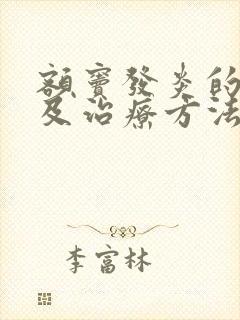 額竇發炎的
及治療方法
李富林